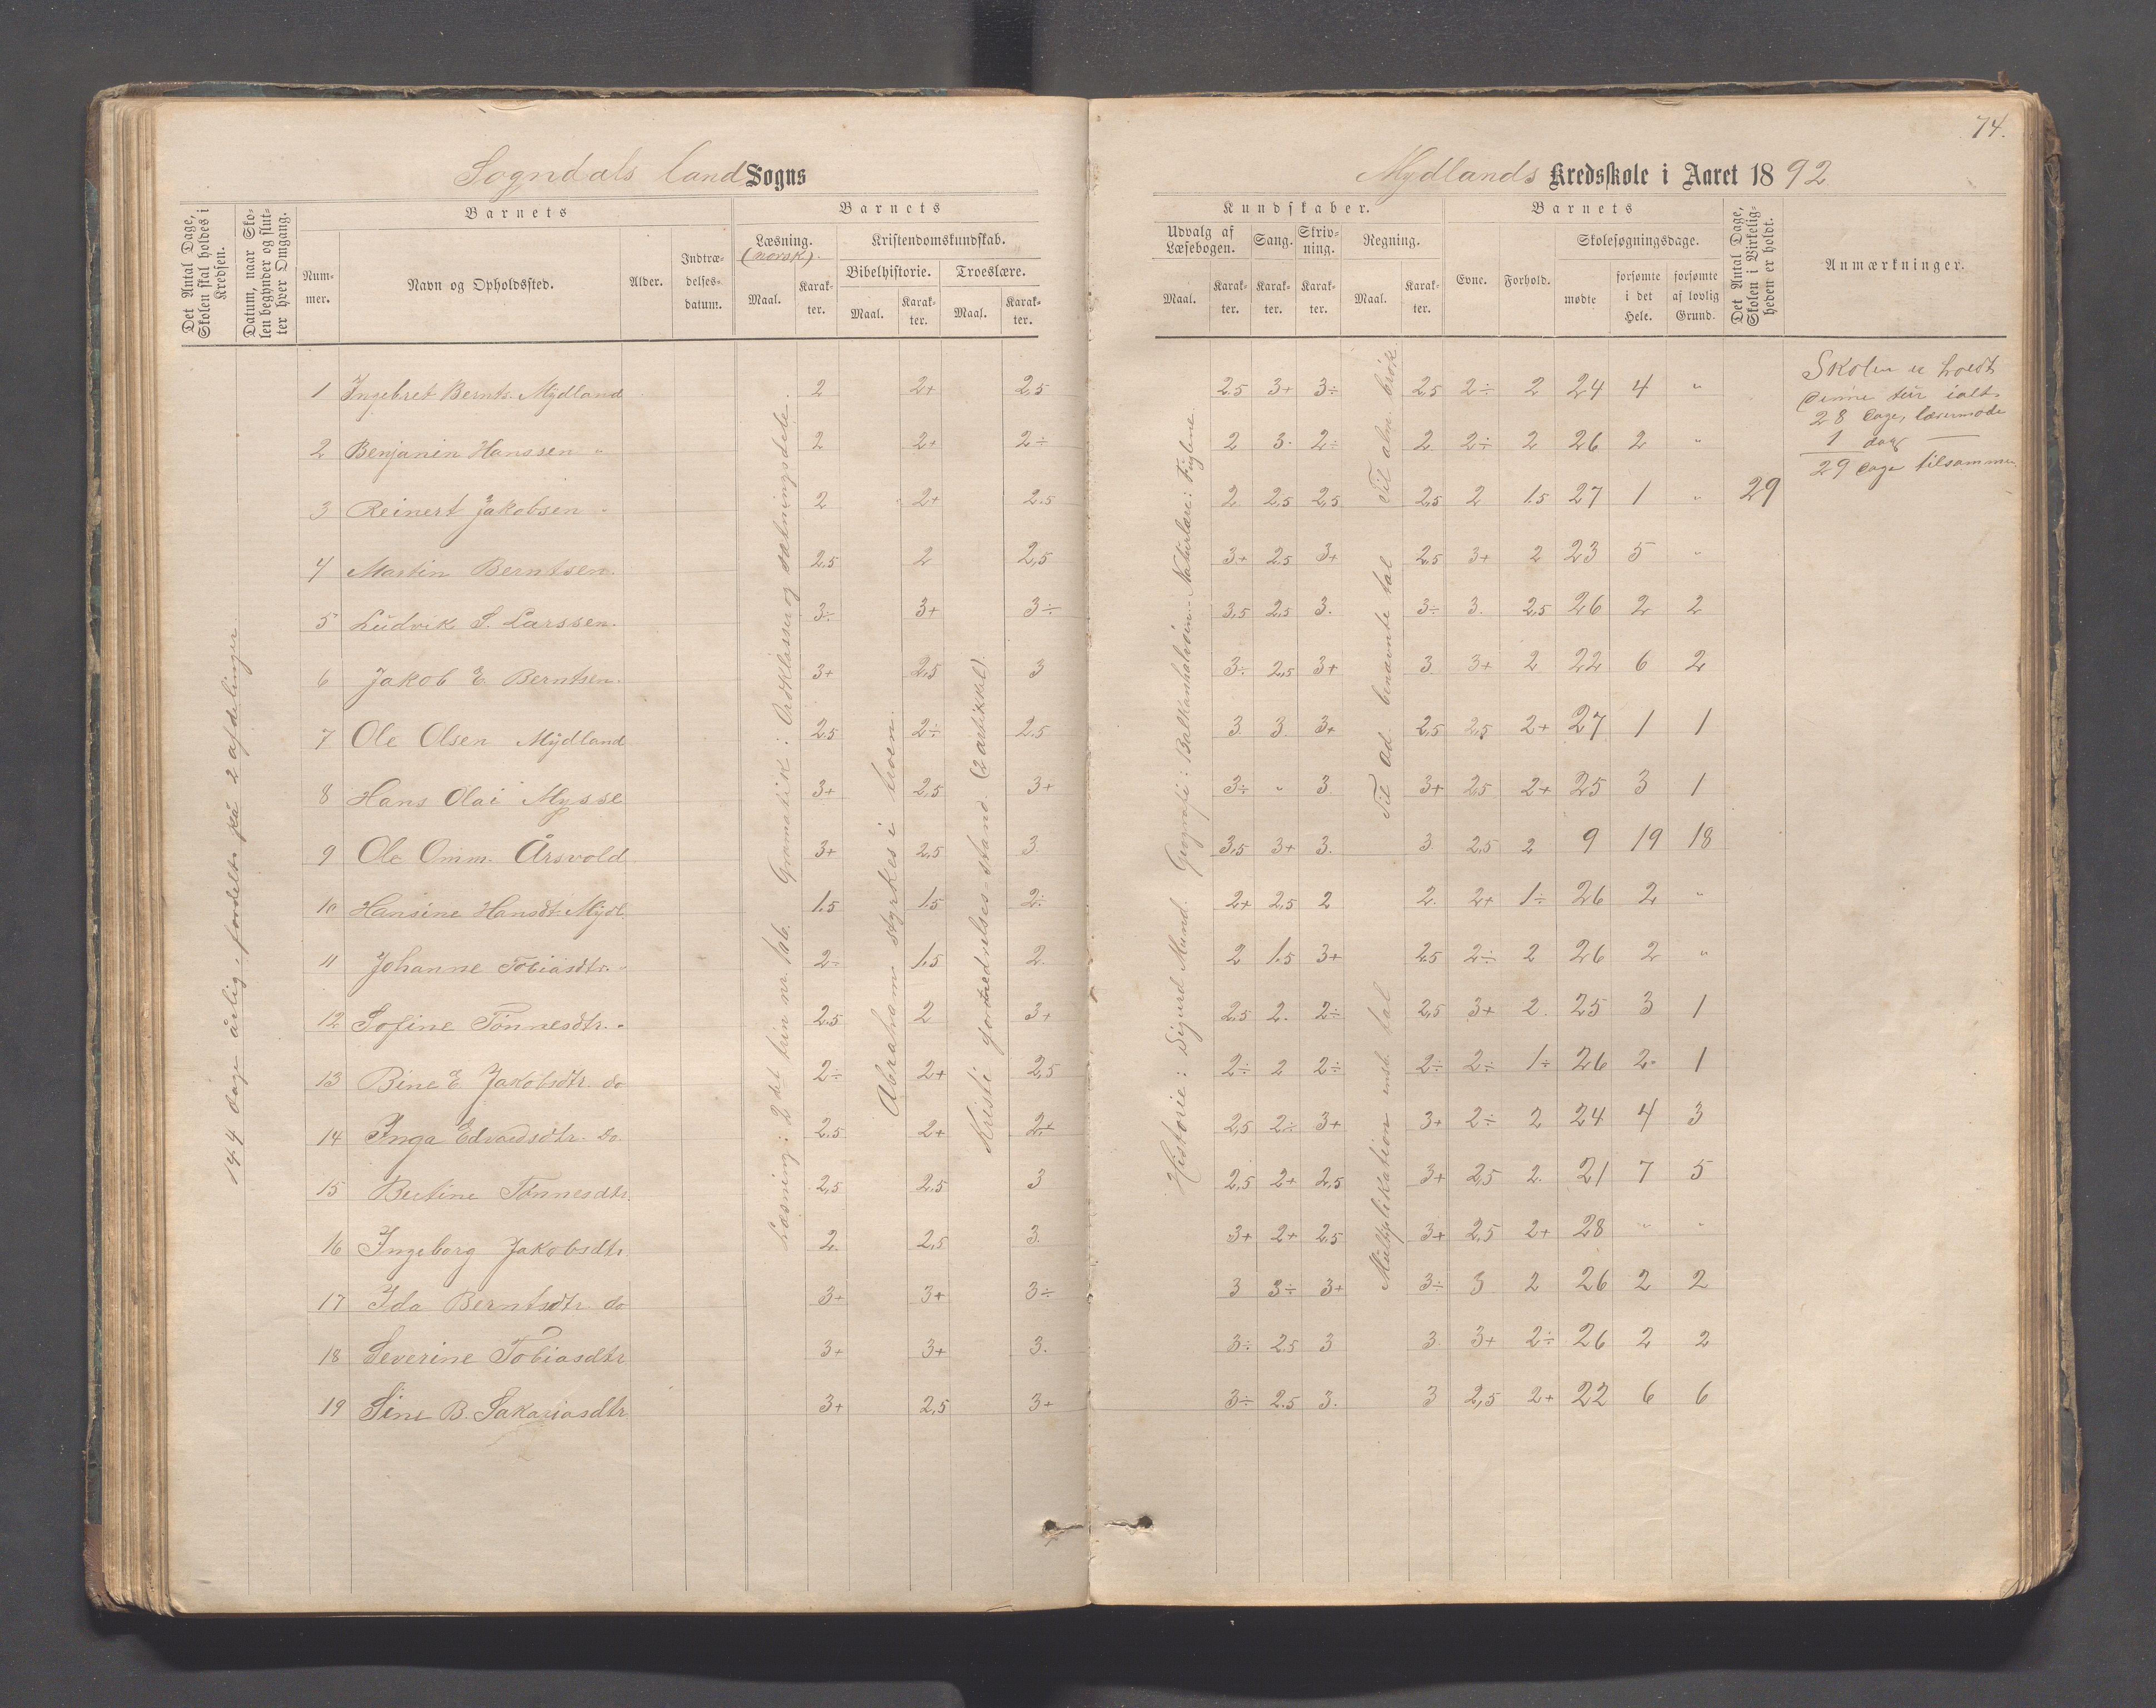 74.
Sogndals land Sogns
Mydlands Kredsskole i Aaret 1892
Det Antal Dage, Skolen skal holdes i Kredsen.
Datum, naar Skolen begynder og slutter hver Omgang.
Barnets
Nummer.
Navn og Opholdssted.
Alder.
Indtrædelsesdatum.
Barnets
Læsning. (norsk).
Maal.
Karakter.
Kristendomskundskab.
Bibelhistorie.
Maal.
Karakter.
Troeslære.
Maal.
Karakter.
Kundskaber.
Udvalg af Læsebogen.
Maal.
Karakter.
Sang.
Karakter.
Skrivning.
Karakter.
Regning.
Maal.
Karakter.
Barnets
Evne.
Forhold.
Skolesøgningsdage.
mødte
forsømte i det Hele.
forsømte af lovlig Grund.
Det Antal Dage, Skolen i Virkeligheden er holdt.
Anmærkninger.
144 dage årlig, fordelte på 2 afdelinger.
Læsning: 2det trin nr. 106. Gramatik: Ordklasser og sætningsdele.
Abraham styrkes i troen.
Kristi fornedrelses-stand. (2 artikkel).
Historie: Sigurd Mund. Geografi: Balkanhalvøen Naturlære: Fuglene.
Multiplikation ens. tal
Til Ad. benævnte tal
Til alm. brøk.
1 Ingebret Bernts. Mydland 2 2+ 2,5 2.5 3+ 3÷ 2,5 2÷ 2 24 4 "
2 Benjamin Hanssen " 2 2+ 2÷ 2 3. 2÷ 2 2÷ 2 26 2 "
3 Reinert Jakobsen " 2 2+ 2.5 2 2,5 2,5 2,5 2 1.5 27 1 " 29
4 Martin Berntsen. 2.5 2 2,5 3+ 2.5 3+ 2.5 3+ 2 23 5 "
5 Ludvik S. Larssen. 3÷ 3+ 3÷ 3,5 2,5 3. 3÷ 3. 2,5 26 2 2
6 Jakob E. Berntsen. 3+ 2,5 3 3÷ 2,5 3+ 3. 3+ 2 22 6 2
7 Ole Olsen Mydland 2,5 2÷ 2.5 3. 3. 3+ 2,5 2,5 2+ 27 1 1
8 Hans Olai Mysse 3+ 2.5 3+ 3÷ " 3. 3+ 2,5 2+ 25 3 1
9 Ole Omm. Årsvold 3+ 2,5 3. 3,5 3+ 3. 3. 2,5 2 9 19 18
10 Hansine Hansdt. Mydl. 1.5 1.5 2÷ 2+ 2,5 2 2. 2+ 1÷ 26 2 "
11 Johanne Tobiasdtr. " 2÷ 1.5 2. 2 1.5 3+ 2.5 2÷ 2 26 2 "
12 Sofine Tønnesdtr. " 2.5 2 3+ 2.5 2. 2÷ 2,5 3+ 2. 25 3 1
13 Bine E Jakobsdtr. do 2÷ 2+ 2,5 2÷ 2 2÷ 2÷ 2÷ 1÷ 26 2 1
14 Inga Edvardsdtr. do. 2.5 2+ 2+ 2,5 2÷ 3+ 3+ 2÷ 2 24 4 3
15 Bertine Tønnesdtr. 2,5 2,5 3 2,5 2+ 2,5 3+ 2,5 2. 21 7 5
16 Ingeborg Jakobsdtr 2. 2,5 3. 3+ 2+ 2.5 3+ 2,5 2+ 28 " "
17 Ida Berntsdtr. do 3+ 3+ 3÷ 3 3÷ 3+ 3÷ 3 2 26 2 2
18 Severine Tobiasdtr 3+ 3+ 3. 3÷ 2.5 3 3. 3+ 2÷ 26 2 2
19 Sine B. Sakariasdtr 3+ 2,5 3+ 3÷ 2.5 3. 3 2,5 2+ 22 6 6
Skolen er holdt
denne tur ialt
28 dage, lærermøde
1 dag
29 dage tilsammen